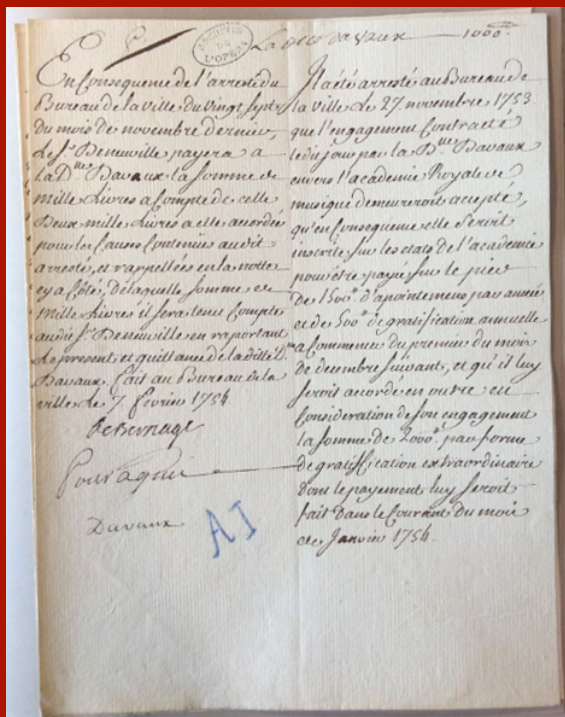 ARCHIVES DE L'OPERA
La Dlle Davaux 1000#
En Consequence de l'arresté du
Bureau de la ville du vingt sept
du mois de novembre dernier,
Le Sr. Deneuville payera a
la Dlle Davaux la somme de
mille Livres a compte de celle
Deux mille Livres a elle accordée
pour les Causes Contenües audit
arresté, et rappellées en la notte
cy a Côté, de laquelle somme de
Mille Livres il sera tenu Compte
audit Sr. Deneuville en raportant
Le present, et quittance de laditte Dlle
Davaux. fait au Bureau de la
ville Le 7. fevrier 1754
De Bernage
Pour aquit
Davaux
AI
Il a été arresté au Bureau de
la ville Le 27. novembre 1753
que l'engagement Contracté
ledit jour par la Dlle Davaux
envers l'academie Royale de
musique demeureroit accepté,
qu'en Consequence elle seroit
inscrite sur les etats de l'academie
pour être payée sur le pied
de 1500# d'apointemens par année
et de 500# de gratification annuelle
a Commencer du premier du mois
de decembre suivant, et qu'il luy
seroit acordé en outre en
Consideration de son engagement
la somme de 2000# par forme
de gratiffication extraordinaire
dont le payement luy seroit
fait Dans le Courant Du mois
de Janvier 1754.